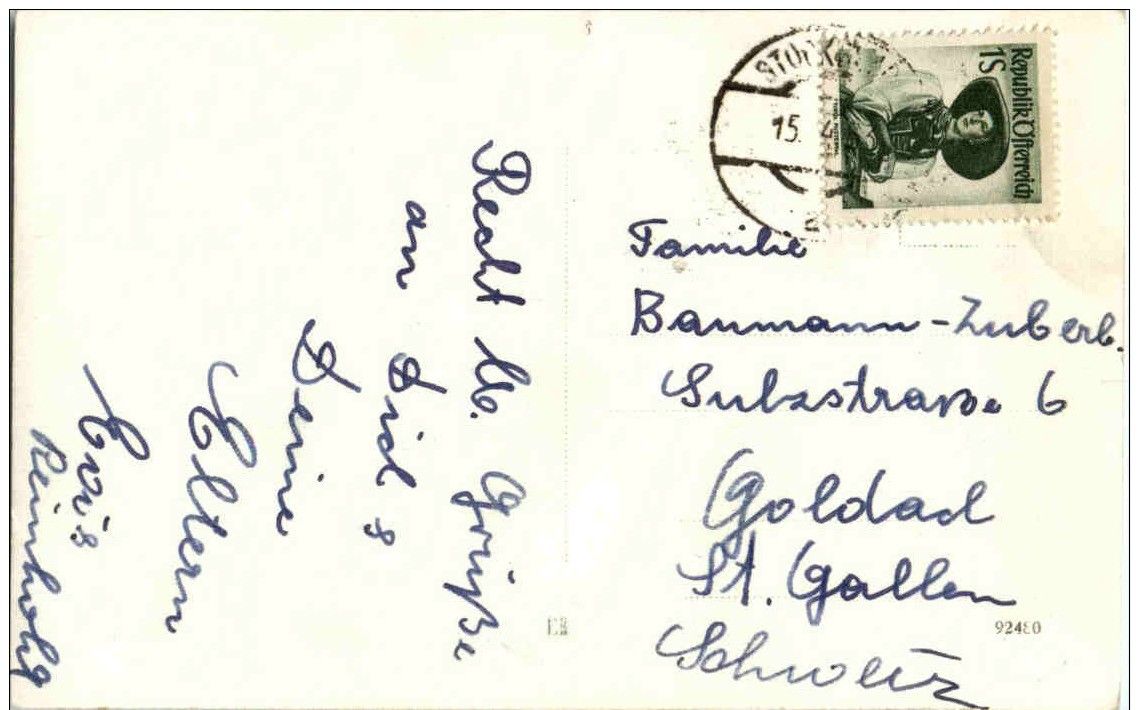 Recht lb. Grüße
an Dich &
Deine
Eltern
Evis
Reinhold
Familie
Baumann-Zuberb.
Sulzstrasse 6
Goldach
St. Gallen
Schweiz
Republik Österreich
1S
15.
92480